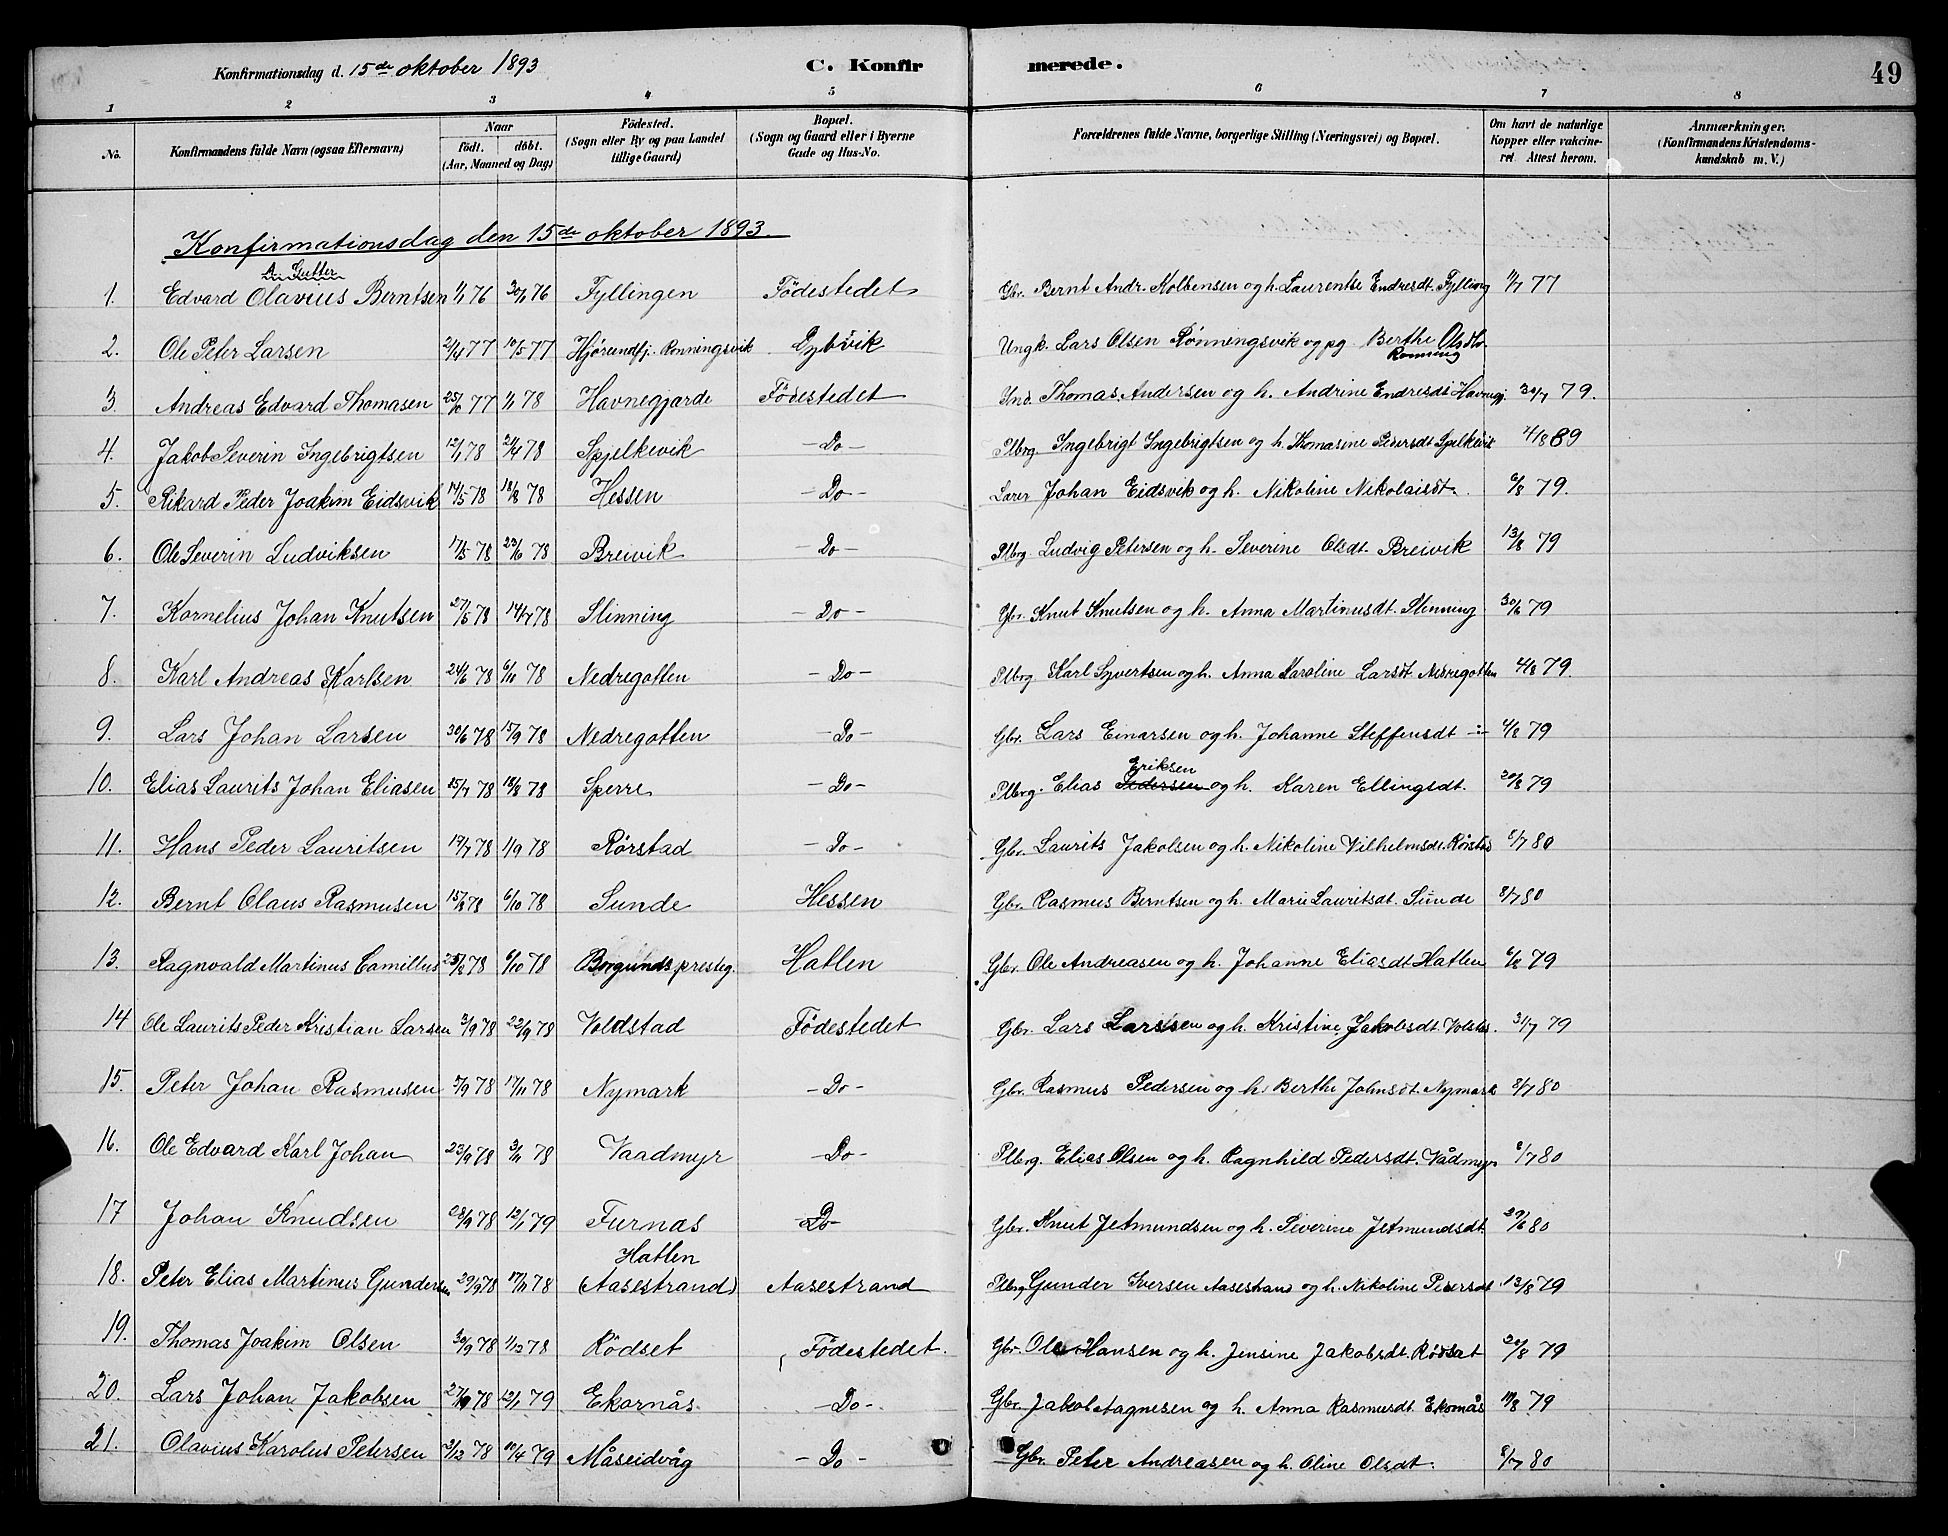 Konfirmationsdag d. 15de oktober 1893
C. Konfirmerede.
49
1 2 3 4 5 6 7 8
No. Konfirmandens fulde Navn (ogsaa Efternavn) Naar født. døbt. (Aar, Maaned og Dag) Fødested. (Sogn eller By og paa Landet tillige Gaard) Bopæl. (Sogn og Gaard eller i Byerne Gade og Hus-No. Forældrenes fulde Navne, borgerlige Stilling (Næringsvei) og Bopæl. Om havt de naturlige Kopper eller vakcineret Attest herom. Anmærkninger. (Konfirmandens Kristendomskundskab m. V.)
Konfirmationsdag den 15de oktober 1893.
A. Gutter
1. Edvard Olavius Berntsen 1/1 76 30/1 76 Fyllingen Fødestedet Gbr. Bernt Andr. Kolbensen og h. Laurentse Endresdt. Fylling 1/7 77
2. Ole Peter Larsen 21/4 77 10/5 77 Hjørendfj. Rønningsvik Dybvik Ungk. Lars Olsen Rønningsvik og pg Berthe Olsdtr Rønning
3. Andreas Edvard Thomasen 25/10 77 1/1 78 Havnegjærde Fødestedet Ind. Thomas Andersen og h. Andrine Endresdt Havnegj. 30/7 79.
4. Jakob Severin Ingebrigtsen 12/1 78 21/4 78 Spjelkevik - Do - Plbrg. Ingebrigt Ingebrigtsen og h. Thomasine Petersdt Spelkevik 4/8 89
5. Rikard Peder Joakim Eidsvik 14/5 78 18/8 78 Hessen - Do - Lærer Johan Eidsvik og h. Nikoline Nikolaisdt. 6/8 79.
6. Ole Severin Ludviksen 17/5 78 23/6 78 Breivik - Do - Plbrg. Ludvig Petersen og h. Severine Olsdt. Breivik 13/8 79
7. Kornelius Johan Knutsen 27/5 78 14/7 78 Slinning - Do - Gbr. Knut Knutsen og h. Anna Martinusdt. Slinning 30/6 79
8. Karl Andreas Karlsen 24/6 78 6/10 78 Nedregotten - Do - Plbrg. Karl Syvertsen og h. Anna Karoline Larsdt Nedregotten 4/8 79.
9. Lars Johan Larsen 30/6 78 15/9 78 Nedregotten - Do - Gbr. Lars Einarsen og h. Johanne Steffensdt -:- 4/8 79
10. Elias Laurits Johan Eliasen 15/7 78 18/8 78 Sperre - Do - Plbrg. Elias Pedersen Eriksen og h. Karen Ellingsdt. 20/8 79
11. Hans Peder Lauritsen 17/7 78 1/9 78 Rørstad - Do - Gbr. Laurits Jakobsen og h. Nikoline Vilhelmsdt. Rørstad 8/7 80
12. Bernt Olaus Rasmusen 15/8 78 6/10 78 Sunde Hessen Gbr. Rasmus Berntsen og h. Marie Lauritsdt. Sunde 8/7 80
13. Ragnvald Martinus Camillus 25/8 78 6/10 78 Borgunds presteg. Hatlen Gbr. Ole Andreasen og h. Johanne Eliasdt Hatlen 6/8 79
14 Ole Laurits Peder Kristian Larsen 3/9 78 22/9 78 Voldstad Fødestedet Gbr. Lars Larssen og h. Kristine Jakobsdt Volstad. 31/7 79
15. Peter Johan Rasmusen 5/9 78 17/11 78 Nymark - Do - Gbr. Rasmus Pedersen og h. Berthe Johnsdt. Nymark 8/7 80
16. Ole Edvard Karl Johan 23/9 78 3/11 78 Vaadmyr - Do - Plbrg. Elias Olsen og h. Ragnhild Pedersdt. Vådmyr 8/7 80
17 Johan Knudsen 28/9 78 12/1 79 Furnas - Do - Gbr. Knut Jetmundsen og h. Severine Jetmundsdt. 29/6 80
18. Peter Elias Martinus Gundersen 29/9 78 17/11 78 Hatlen (Aasestrand) Aasestrand Plbrg Gunder Iversen Aasestrand og h. Nikoline Petersdt 13/8 79
19. Thomas Joakim Olsen 30/9 78 1/12 78 Rødset Fødestedet. Gbr. Ole Hansen og h. Jensine Jakobsdt. Rødset 20/8 79
20. Lars Johan Jakobsen 27/10 78 12/1 79 Ekornås - Do - Gbr. Jakob Aagnesen og h. Anna Rasmusdt. Ekornås 11/8 79
21. Olavius Karolus Petersen 3/12 78 10/4 79 Måseidvåg - Do - Gbr. Peter Andreasen og h. Oline Olsdt. 8/7 80